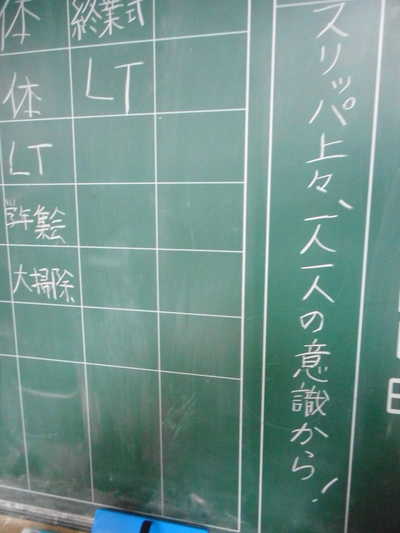 体
終業式
体
LT
LT
学年集会
大掃除
スリッパ上々、一人一人の意識から!